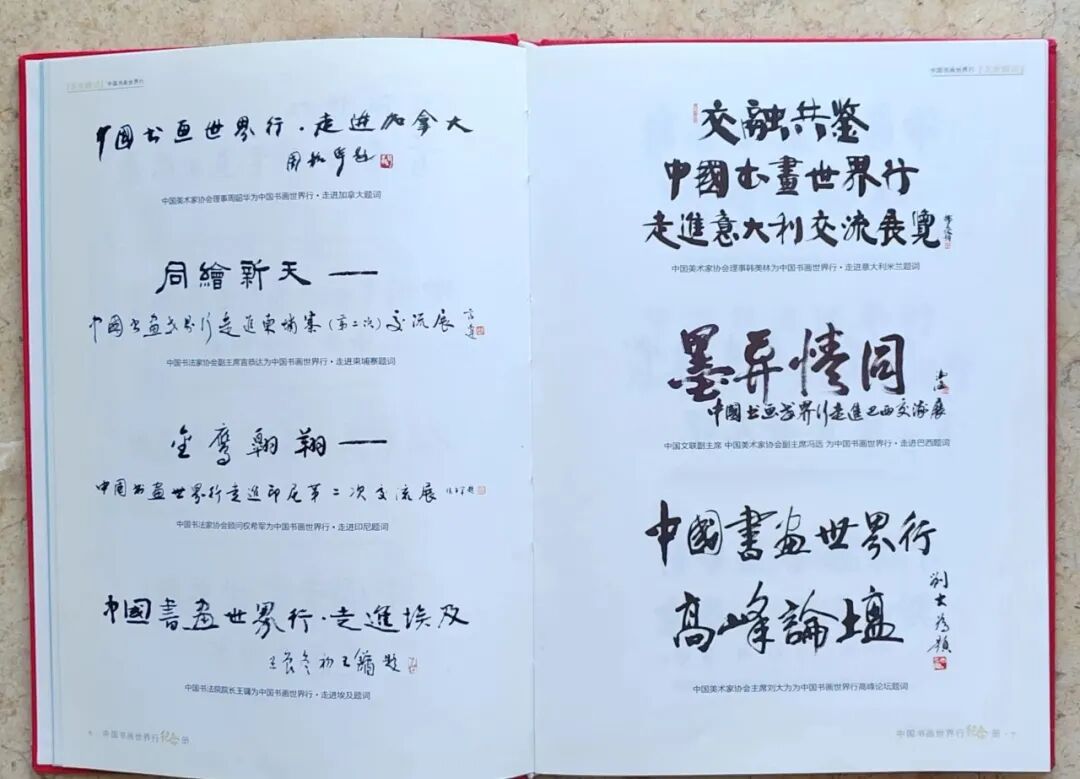 中国书画世界行
中國书画世界行·走进加拿大
周韶华题
中国美术家协会理事周韶华为中国书画世界行·走进加拿大题词
同繪新天——
中国书画世界行走進柬埔寨(第二次)交流展
中国书法家协会副主席言恭达为中国书画世界行·走进柬埔寨题词
金鹰翱翔——
中国书画世界行走進印尼第二次交流展
中国书法家协会顾问权希军为中国书画世界行·走进印尼题词
中国書画世界行·走進埃及
壬辰冬初王鏞题
中国书法院院长王镛为中国书画世界行·走进埃及题词
6·中国书画世界行纪念册
中国书画世界行
交融共鉴
中國书畫世界行
走進意大利交流展覽
中国美术家协会理事韩美林为中国书画世界行·走进意大利米兰题词
墨异情同
中國书画世界行走進巴西交流展
中国文联副主席 中国美术家协会副主席冯远 为中国书画世界行·走进巴西题词
中國書画世界行
高峰論壇
刘大为题
中国美术家协会主席刘大为为中国书画世界行高峰论坛题词
中国书画世界行纪念册·7